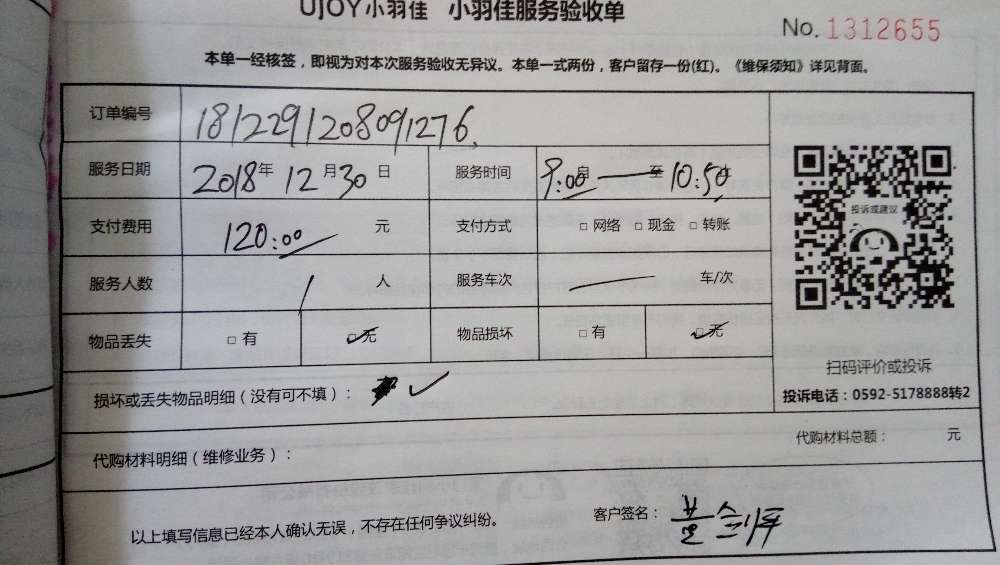 UJOY小羽佳 小羽佳服务验收单
No. 1312655
本单一经核签，即视为对本次服务验收无异议。本单一式两份，客户留存一份(红)。《维保须知》详见背面。
订单编号 1812291208091276
服务日期 2018年12月30日 服务时间 9:00 至 10:50
支付费用 120:00 元 支付方式 □网络 □现金 □转账
投诉或建议
服务人数 1 人 服务车次 — 车/次
物品丢失 □有 ☑无 物品损坏 □有 ☑无
扫码评价或投诉
损坏或丢失物品明细（没有可不填）： ✓
投诉电话：0592-5178888转2
代购材料明细（维修业务）： 代购材料总额： 元
以上填写信息已经本人确认无误，不存在任何争议纠纷。 客户签名：